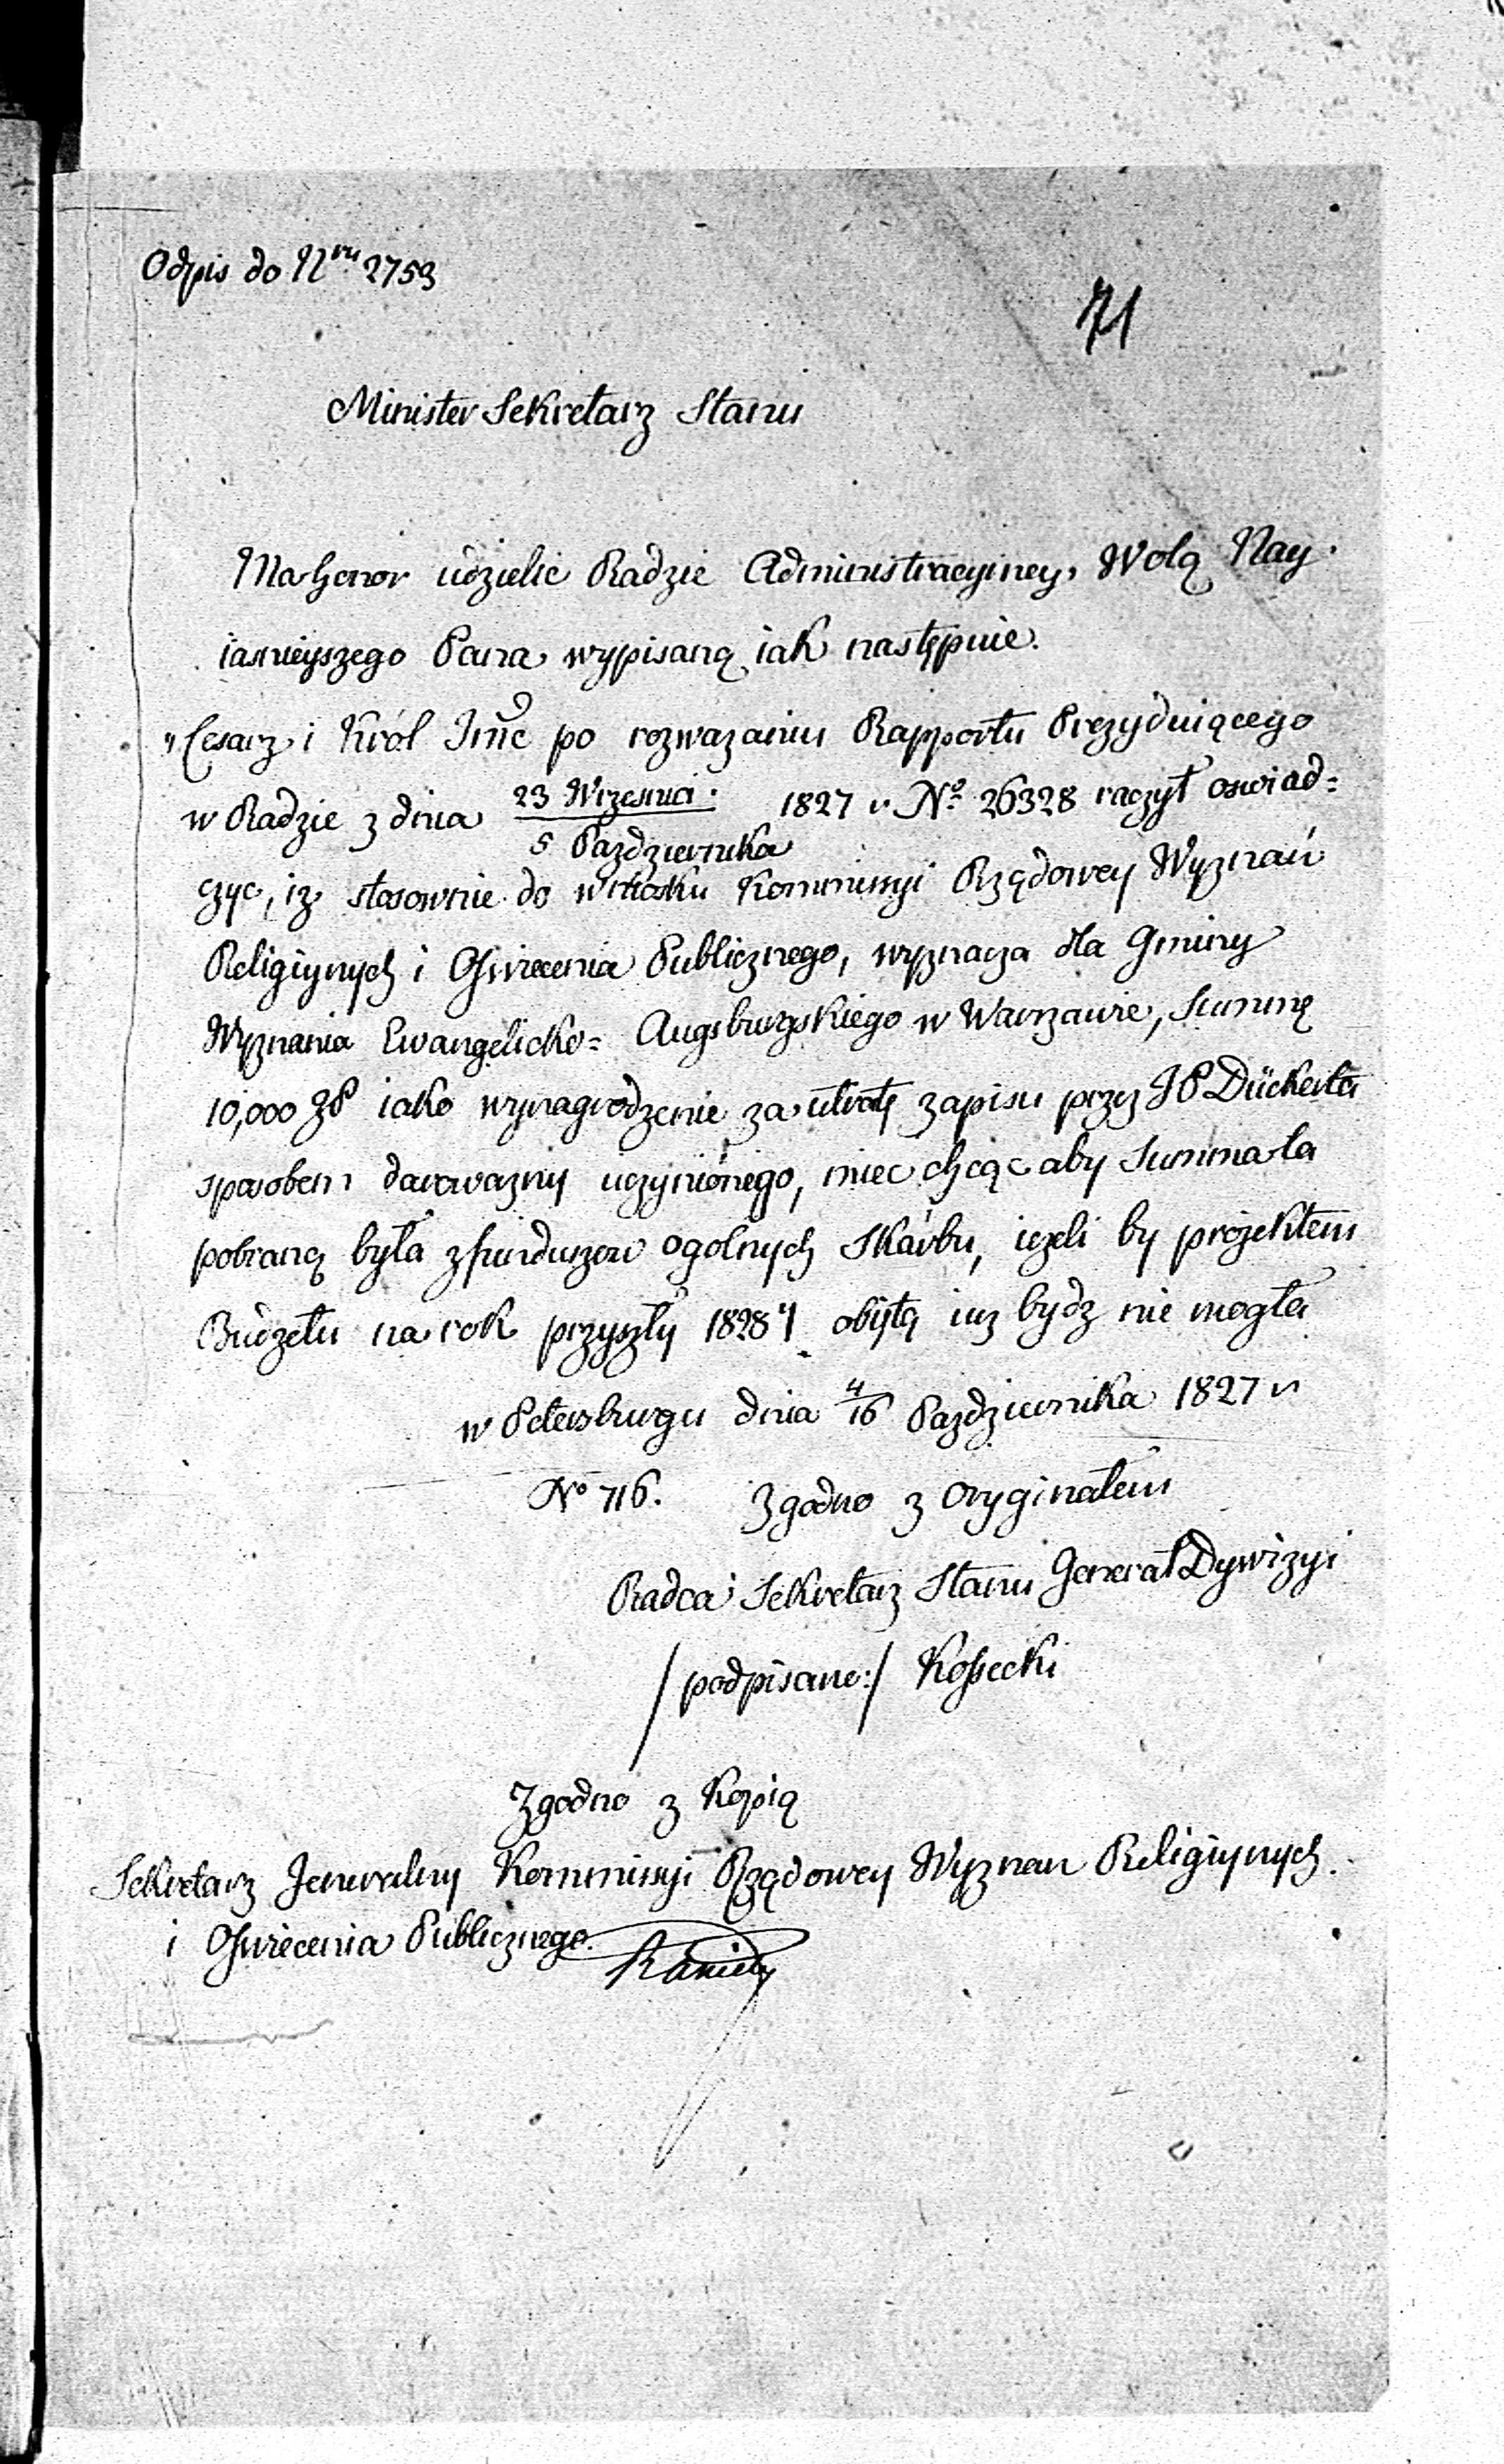 Odpis do Nru 2753
71
Minister Sekretarz Stanu
Ma honor udzielić Radzie Administracyiney, Wolą Nay
iasnieyszego Pana wypisaną iak następuie.
"Cesarz i Król Jmć po rozważaniu Rapportu Prezyduiącego
w Radzie z dnia 23 Wrzesnia / 5 Pazdziernika 1827 r. No 26328 raczył oswiad=
czyc, iz stosownie do wniosku Kommissyi Rządowey Wyznań
Religiynych i Oswiecenia Publicznego, wyznacza dla Gminy
Wyznania Ewangelicko= Augsburgskiego w Warszawie, Summę
10,000 zł iako wynagrodzenie za utratę zapisu przez JP Dückerta
sposobem darowizny uczynionego, miec chcąc aby Summa ta
pobraną była z funduszow ogolnych Skarbu, iezeli by projektem
Budzetu na rok przyszły 1828 obiętą iuz bydz nie mogła
w Petersburgu dnia 4/16 Pazdziernika 1827 r
No 716. Zgodno z Oryginałem
Radca Sekretarz Stanu Generał Dywizyi
/podpisano:/ Kossecki
Zgodno z Kopią
Sekretarz Jeneralny Kommissyi Rządowey Wyznan Religiynych
i Oswiecenia Publicznego.